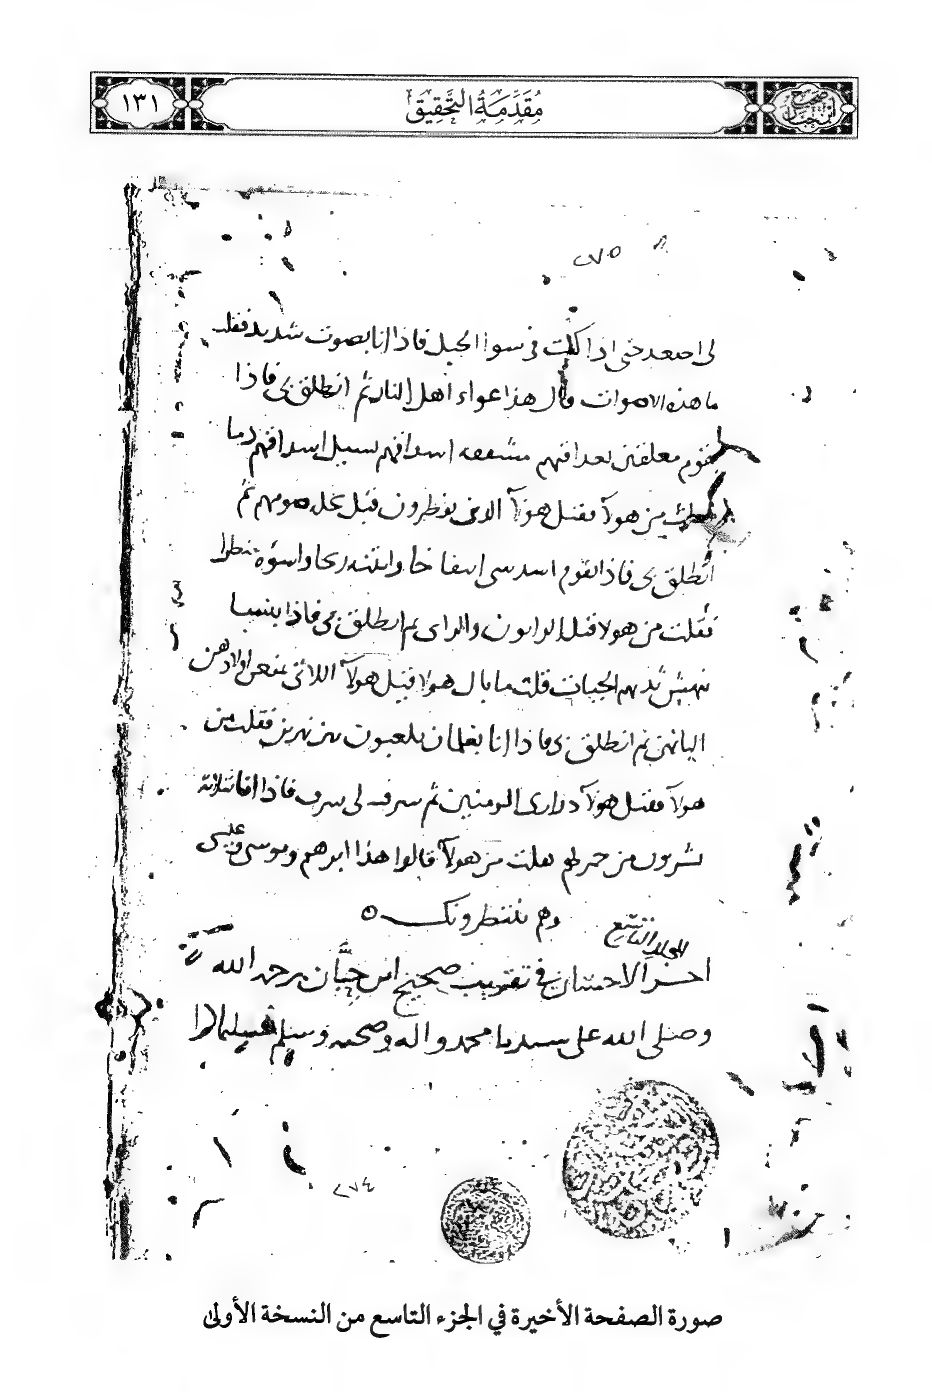 ١٣١
مُقَدَّمَةُ التَّحْقِيقِ
صحيح ابن حبان
٢٧٥
لى اصعد حتى اذا كنت فى سوا الجبل فاذا انا بصوت شديد فقلت
ما هذه الاصوات قال هذا عواء اهل النار ثم انطلق بى فاذا
بقوم معلقين بعراقيهم مشققه اشداقهم تسيل اشداقهم دما
فقلت من هولآ فقيل هولآ الذين يفطرون قبل تحله صومهم ثم
انطلق بى فاذا بقوم اشد شى انتفاخا وانتنه ريحا واسوؤه منظرا
فقلت من هولا قيل الزانون والزوانى ثم انطلق بى فاذا بنسا
تنهش ثديهم الحيات قلت ما بال هولا قيل هولآ اللاتى يمنعن اولادهن
البانهن ثم انطلق بى فاذا انا بغلمان يلعبون بين نهرين فقلت من
هولآ فقيل هولآ ذرارى المومنين ثم شرف لى شرف فاذا انا بثلاثة
يشربون من خمر لهم فقلت من هولآ قالوا هذا ابرهيم وموسى وعيسى
وهم ينتظرونك ه
اخر المجلد التاسع الاحسان فى تقريب صحيح ابن حبان رحمه الله
وصلى الله على سيدنا محمد واله وصحبه وسلم تسليما
٢٧٤
صورة الصفحة الأخيرة في الجزء التاسع من النسخة الأولى